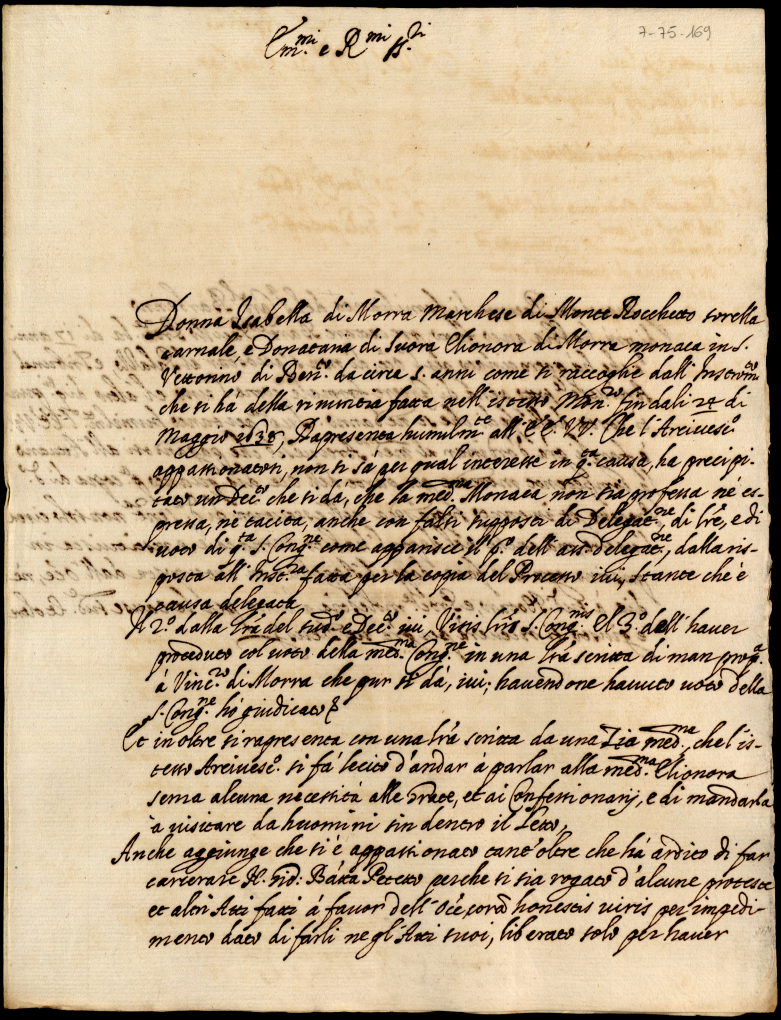 7-75-169
Em.mi e R.mi S.ri
Donna Isabella di Morra Marchese di Monte Rocchetto sorella
carnale, e Donataria di Suora Elionora di Morra monaca in S.
Vettorino di Ben.to da circa s. anni come si raccoghe dall' Instrom.to
che si hà della rinuntia fatta nell' istesso Mon.ro sin dali 24 di
Maggio 1638, Rapresenta humilm.te all' EE. VV. Che l'Arcivesc.o
appassionatosi, non si sà per qual interesse in q.ta causa, ha precipi-
tato un Dec.to che si dà, che la med.ma Monaca non sia professa nè es-
pressa, nè tacita, anche con falsi supposti di Delegat.ne, di lrè, e di
voto di q.ta S. Cong.ne come apparisce il p.o dell' aut.delegat.ne, dalla ris-
posta all' Inst.za fatta per la copia del Processo ivi, stante che è
causa delegata
Il 2.o dalla lrà del sud.o e Dec.to ivi, Visis lris S. Cong.nis El 3.o dell' haver
proceduto col voto della med.ma Cong.ne in una lrà scritta di man prop.a
à Vinc.zo di Morra che pur si dà, ivi; havendone havuto voto della
S. Cong.ne hò giudicato &
Et in oltre si rapresenta con una lrà scritta da una Zia med.ma, che l'is-
tesso Arcivesc.o si fà lecito d'andar à parlar alla med.ma Elionora
senza alcuna necessità alle grate, et ai Confessionarij, e di mandarla
à visitare da huomini sin dentro il letto,
Anche aggiunge che si è appassionato tant'oltre che hà ardito di far
carcerare N. Gio: Batta Petetto perche si sia rogato d'alcune proteste
et altri Atti fatti à favor dell' Oce, corà honestis viris per impedi-
mento dato di farli negl'Atti suoi, liberato solo per haver